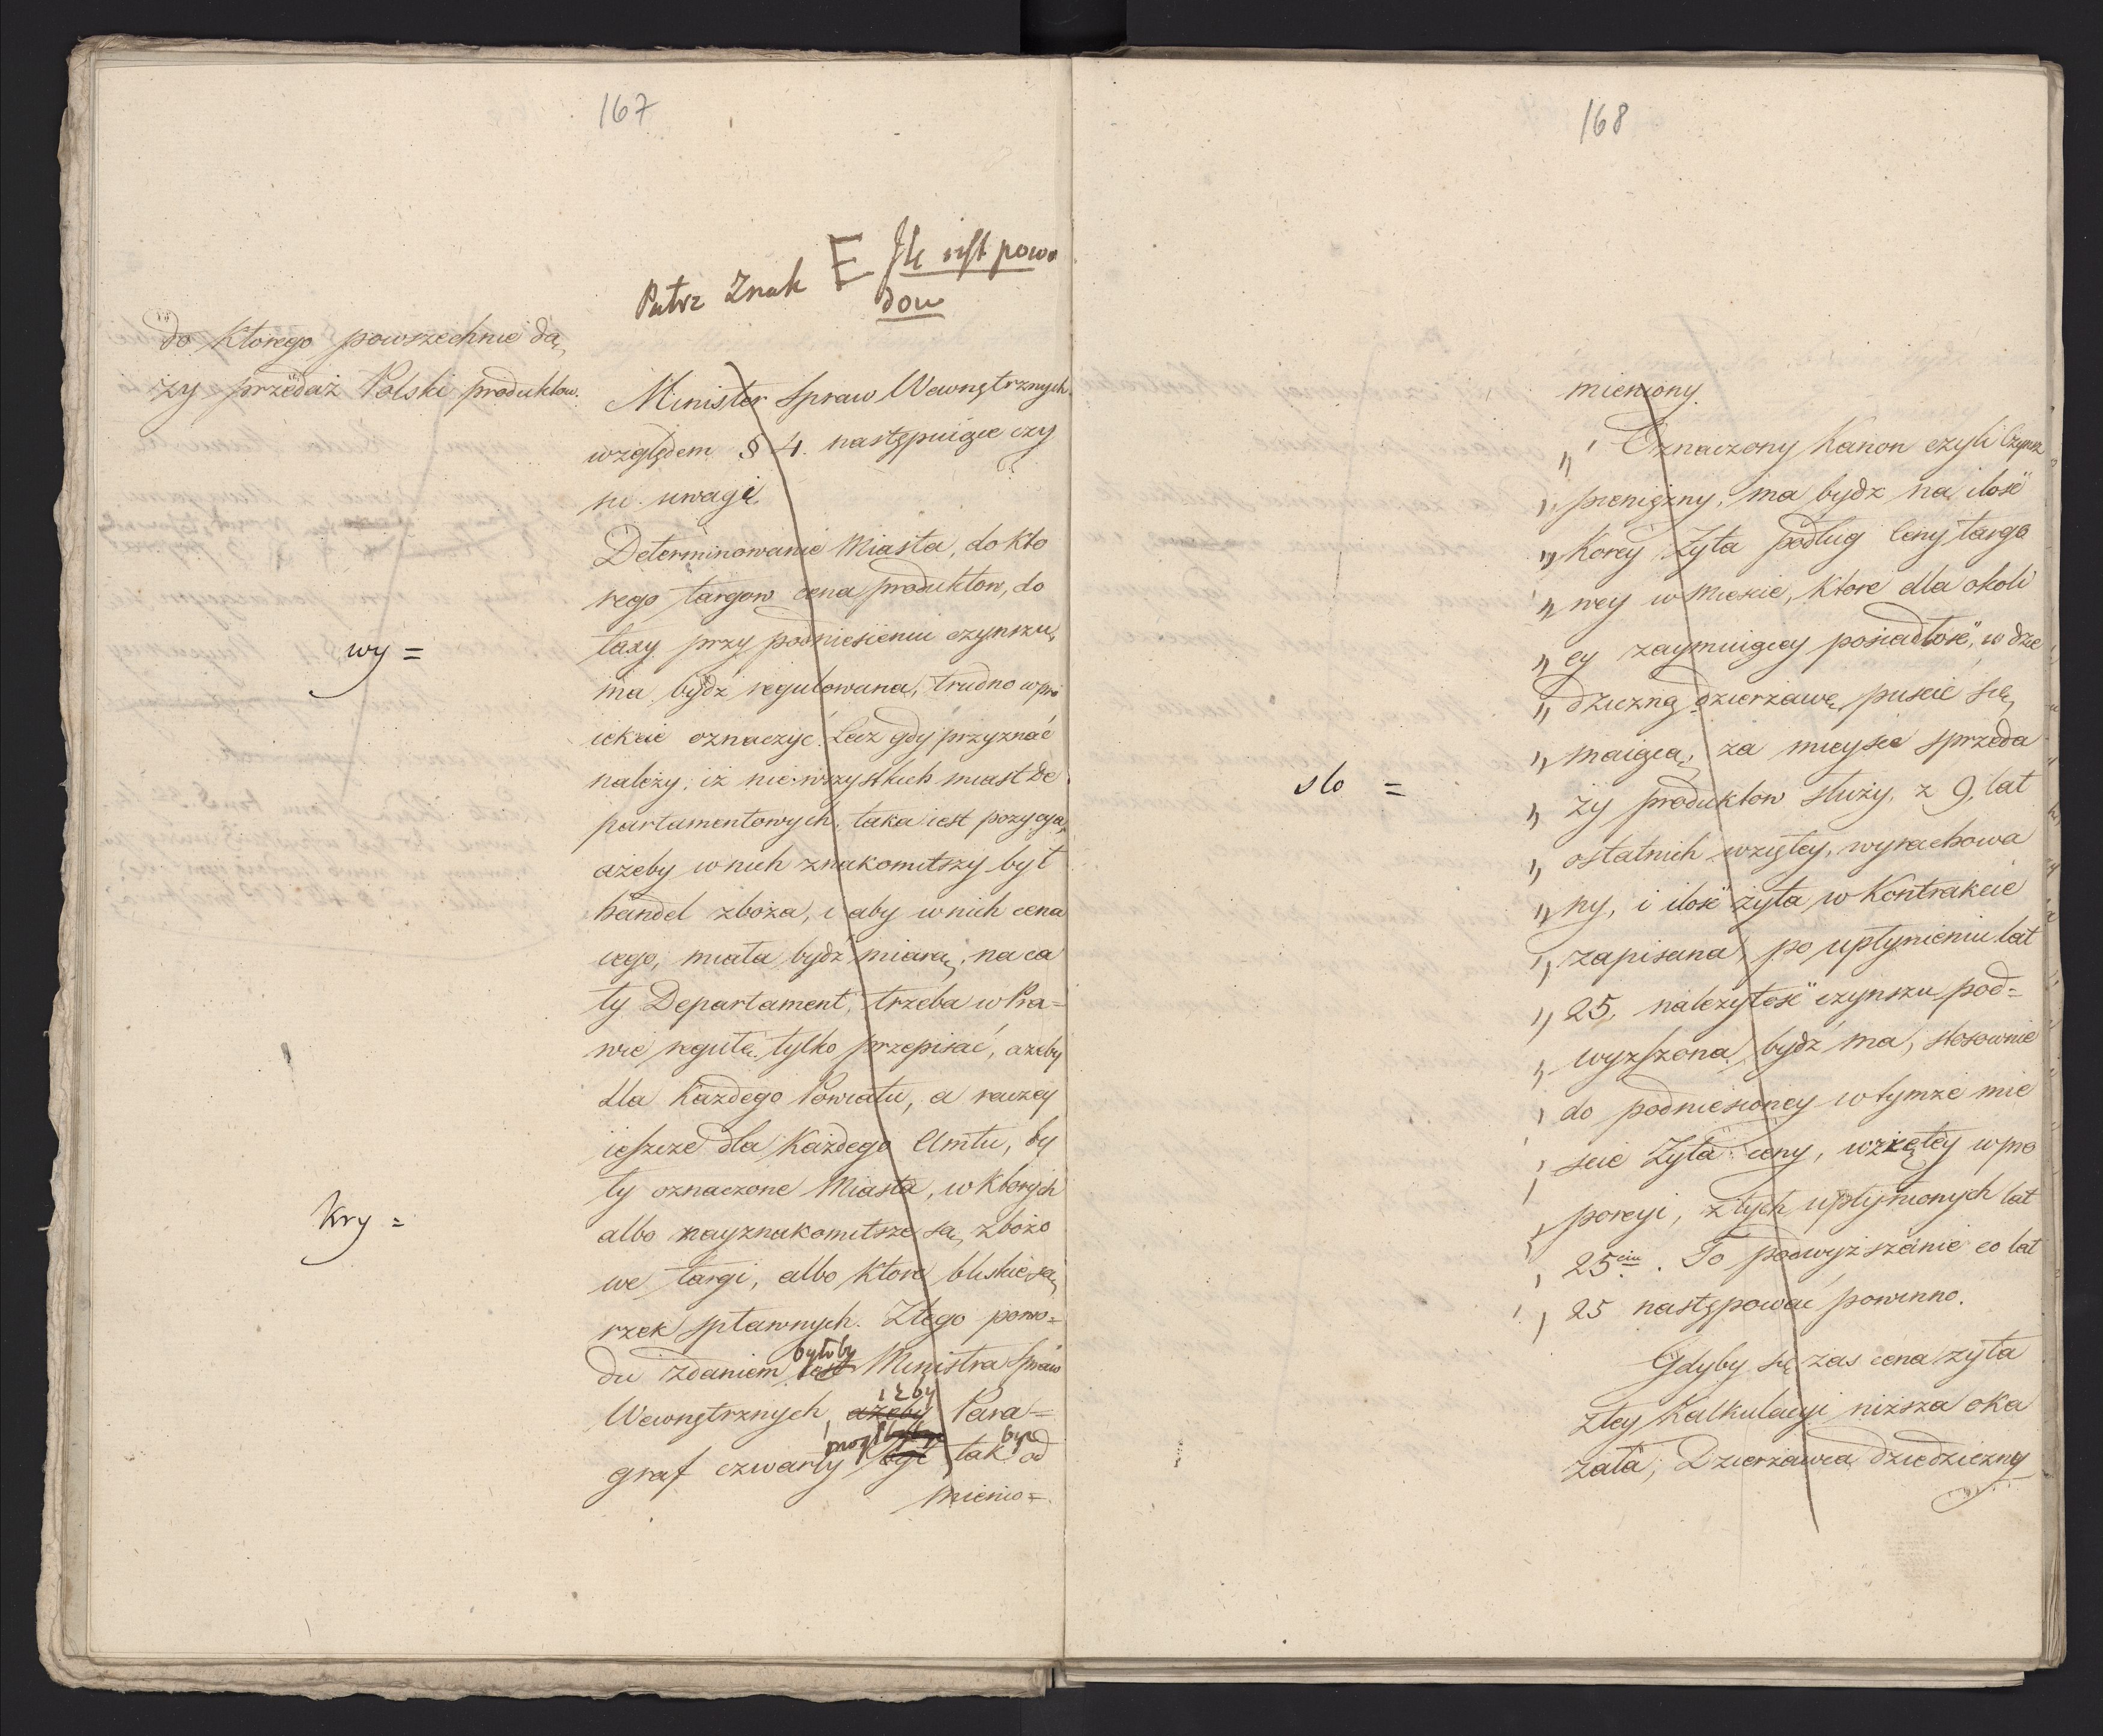 167
Patrz Znak E
jest powo
dow
do ktorego powszechnie dą
ży przedaż Polski produktow.
wy =
kry =
Minister Spraw Wewnętrznych
względem § 4. następuiące czy
ni uwagi.
Determinowanie Miasta, do kto
rego targow cena produktow, do
taxy przy podniesieniu czynszu,
ma bydź regulowana, trudno w pro
iekcie oznaczyć. Lecz gdy przyznać
należy, iż nie wszystkich miast De
partamentowych, taka iest pozycya,
ażeby w nich znakomitszy był
handel zboża, i aby w nich cena
iego, miała bydź miarą, na ca
ły Departament, trzeba w Pra=
wie regułę tylko przepisać, ażeby
dla każdego Powiatu, a raczey
ieszcze dla każdego Amtu, by
ły oznaczone Miasta, w ktorych
albo nayznakomitsze są zbożo
we targi, albo ktore bliskie są
rzek spławnych. Z tego powo=
byłoby
du zdaniem iest Ministra Spraw
iżby
Wewnętrznych, ażeby Para=
mogł być
graf czwarty był tak od
mienio=
168
slo =
mieniony.
„ Oznaczony Kanon czyli Czynsz
„ pieniężny, ma bydź na ilość
„ Korcy Żyta podług Ceny targo
„ wey w Mieście, ktore dla okoli
„ cy zaymuiącey posiadłość, w dzie
„ dziczną dzierżawę puscić się
„ maiącą, za mieysce sprzeda
„ ży produktow służy, z 9. lat
„ ostatnich wziętey, wyrachowa
„ ny, i ilość żyta w Kontrakcie
„ zapisana, po upłynieniu lat
„ 25. należytość czynszu pod=
„ wyższona bydź ma, stosownie
„ do podniesioney w tymże mie
„ scie Żyta ceny, wziętey w pro
„ porcyi, z tych upłynionych lat
„ 25ciu. To podwyższanie co lat
„ 25 następować powinno.
Gdyby się zas cena żyta
z tey Kalkulacyi niższa oka
zała, Dzierżawca dziedziczny